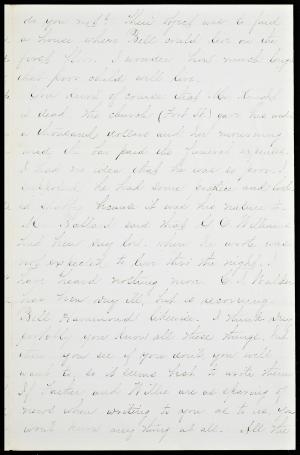 do you not? Their object was to find
a house where Bell could live on the
first floor. I wonder how much longer
that poor child will live.
You know of course that Mr. Knight
is dead. The church (Fort St.) gave his widow
a thousand dollars and her mourning
and the paid the funeral expenses.
I had no idea that he was so poor. I
he had some
is because it was his nature to.
Mr. Ballard said that G. C. Williams
had been very low. when he wrote was
not expected to live thro' the night. I
have heard nothing more. C. I. Walker
has been very ill, but is recovering.
Bell Hammond likewise. I think very
probably you know all these things, but
then you see if you don't, you will
want to, so it seems best to write them.
If Father and Willie are as sparing of
news when writing to you as to us, you
won't know any thing at all. All the